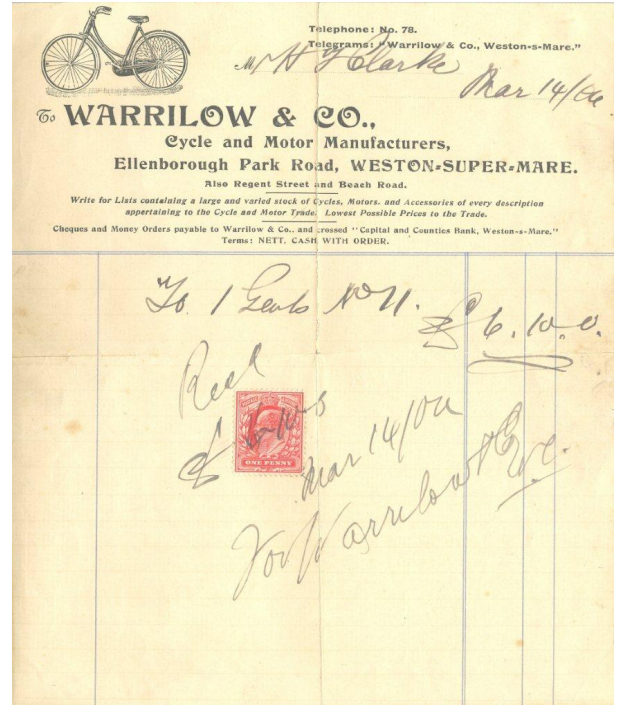 Telephone: No. 78.
Telegrams: "Warrilow & Co., Weston-s-Mare."
Mr H J Clarke
Mar 14/06
To WARRILOW & CO.,
Cycle and Motor Manufacturers,
Ellenborough Park Road, WESTON-SUPER-MARE.
Also Regent Street and Beach Road.
Write for Lists containing a large and varied stock of Cycles, Motors, and Accessories of every description
appertaining to the Cycle and Motor Trade. Lowest Possible Prices to the Trade.
Cheques and Money Orders payable to Warrilow & Co., and crossed "Capital and Counties Bank, Weston-s-Mare."
Terms: NETT. CASH WITH ORDER.
To 1 Gents No 11. £6.10.0.
Recd
£6/10/0
ONE PENNY
Mar 14/06
For Warrilow & Co.